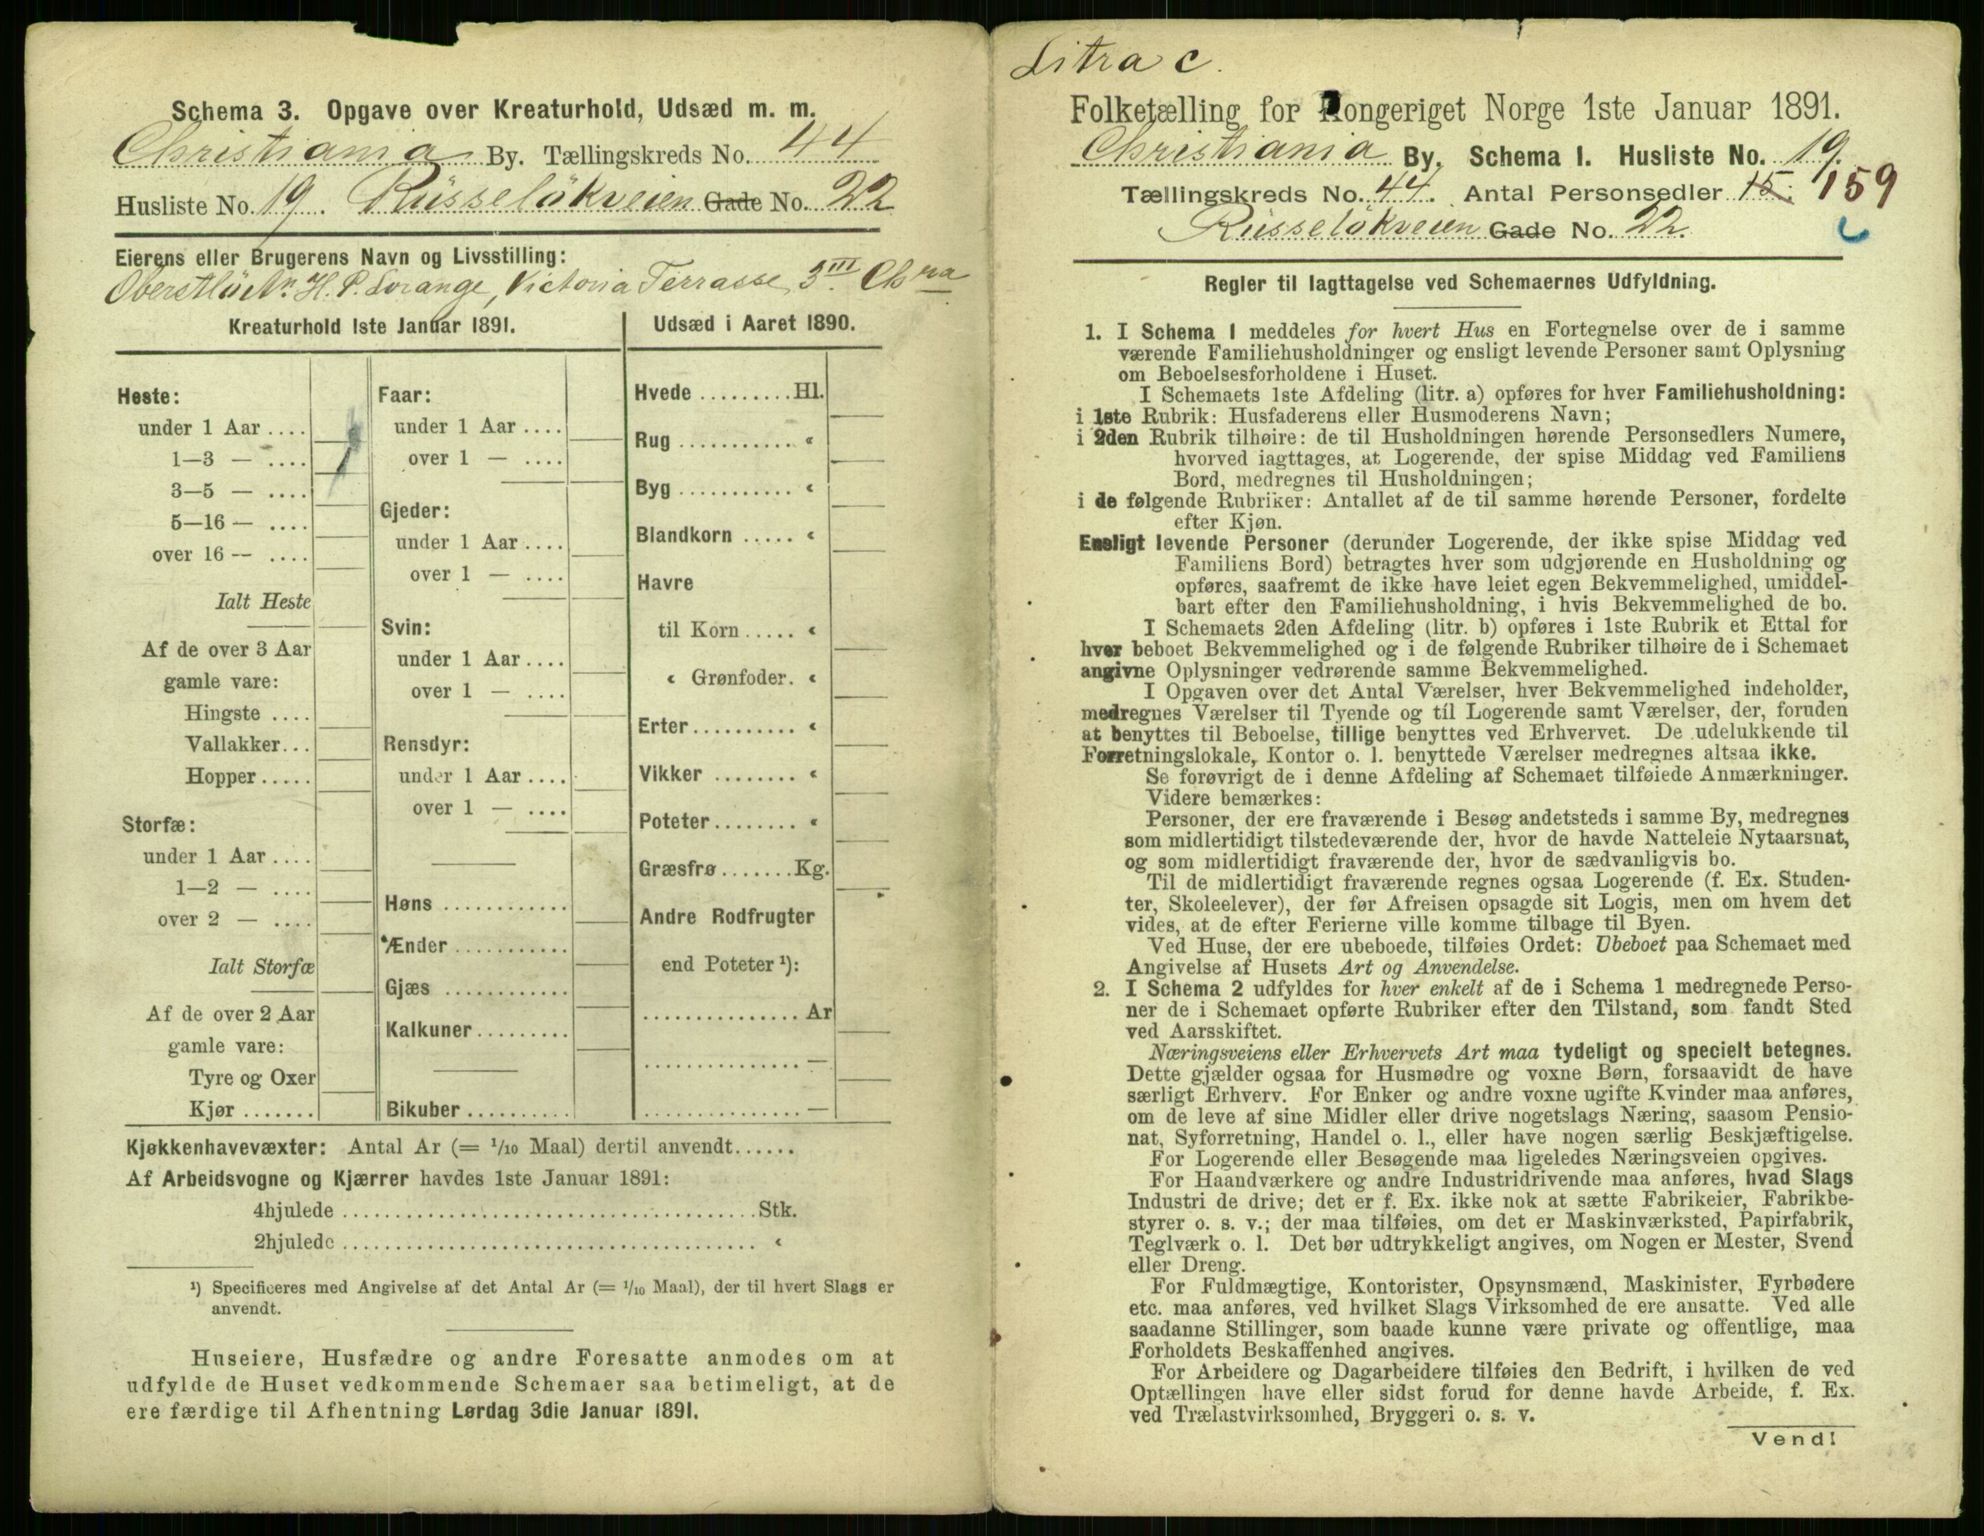 Schema 3. Opgave over Kreaturhold, Udsæd m. m.
Christiania By. Tællingskreds No. 44
Husliste No. 19. Rüsseløkveien Gade No. 22
Eierens eller Brugerens Navn og Livsstilling:
H. P. Lorange, Victoria Terrasse 3 III Chra
Kreaturhold 1ste Januar 1891.
Heste:
under 1 Aar ....
1—3 — ....
3—5 — ....
5—16 — ....
over 16 — ....
Ialt Heste
Af de over 3 Aar
gamle vare:
Hingste ....
Vallakker...
Hopper .....
Storfæ:
under 1 Aar ....
1—2 — ....
over 2 — ....
Ialt Storfæ
Af de over 2 Aar
gamle vare:
Tyre og Oxer
Kjør .......
Faar:
under 1 Aar ....
over 1 — ....
Gjeder:
under 1 Aar ....
over 1 — ....
Svin:
under 1 Aar ....
over 1 — ....
Rensdyr:
under 1 Aar ....
over 1 — ....
Høns ............
Ænder ...........
Gjæs ............
Kalkuner.........
Bikuber ..........
Udsæd i Aaret 1890.
Hvede .........Hl.
Rug ........... "
Byg ........... "
Blandkorn ..... "
Havre
til Korn ..... "
" Grønfoder. "
Erter ......... "
Vikker ........ "
Poteter........ "
Græsfrø .......Kg.
Andre Rodfrugter
end Poteter ¹):
............... Ar
............... —
............... —
Kjøkkenhavevæxter: Antal Ar (= 1/10 Maal) dertil anvendt......
Af Arbeidsvogne og Kjærrer havdes 1ste Januar 1891:
4hjulede ........................................Stk.
2hjulede ........................................ "
¹) Specificeres med Angivelse af det Antal Ar (= 1/10 Maal), der til hvert Slags er
anvendt.
Huseiere, Husfædre og andre Foresatte anmodes om at
udfylde de Huset vedkommende Schemaer saa betimeligt, at de
ere færdige til Afhentning Lørdag 3die Januar 1891.
Litra c.
Folketælling for Kongeriget Norge 1ste Januar 1891.
Christiania By. Schema 1. Husliste No. 19.
Tællingskreds No. 44. Antal Personsedler 15. 159
Rüsseløkveien Gade No. 22.
Regler til Iagttagelse ved Schemaernes Udfyldning.
1. I Schema 1 meddeles for hvert Hus en Fortegnelse over de i samme
værende Familiehusholdninger og ensligt levende Personer samt Oplysning
om Beboelsesforholdene i Huset.
I Schemaets 1ste Afdeling (litr. a) opføres for hver Familiehusholdning:
i 1ste Rubrik: Husfaderens eller Husmoderens Navn;
i 2den Rubrik tilhøire: de til Husholdningen hørende Personsedlers Numere,
hvorved iagttages, at Logerende, der spise Middag ved Familiens
Bord, medregnes til Husholdningen;
i de følgende Rubriker: Antallet af de til samme hørende Personer, fordelte
efter Kjøn.
Ensligt levende Personer (derunder Logerende, der ikke spise Middag ved
Familiens Bord) betragtes hver som udgjørende en Husholdning og
opføres, saafremt de ikke have leiet egen Bekvemmelighed, umiddel-
bart efter den Familiehusholdning, i hvis Bekvemmelighed de bo.
I Schemaets 2den Afdeling (litr. b) opføres i 1ste Rubrik et Ettal for
hver beboet Bekvemmelighed og i de følgende Rubriker tilhøire de i Schemaet
angivne Oplysninger vedrørende samme Bekvemmelighed.
I Opgaven over det Antal Værelser, hver Bekvemmelighed indeholder,
medregnes Værelser til Tyende og til Logerende samt Værelser, der, foruden
at benyttes til Beboelse, tillige benyttes ved Erhvervet. De udelukkende til
Forretningslokale, Kontor o. l. benyttede Værelser medregnes altsaa ikke.
Se forøvrigt de i denne Afdeling af Schemaet tilføiede Anmærkninger.
Videre bemærkes:
Personer, der ere fraværende i Besøg andetsteds i samme By, medregnes
som midlertidigt tilstedeværende der, hvor de havde Natteleie Nytaarsnat,
og som midlertidigt fraværende der, hvor de sædvanligvis bo.
Til de midlertidigt fraværende regnes ogsaa Logerende (f. Ex. Studen-
ter, Skoleelever), der før Afreisen opsagde sit Logis, men om hvem det
vides, at de efter Ferierne ville komme tilbage til Byen.
Ved Huse, der ere ubeboede, tilføies Ordet: Ubeboet paa Schemaet med
Angivelse af Husets Art og Anvendelse.
2. I Schema 2 udfyldes for hver enkelt af de i Schema 1 medregnede Perso-
ner de i Schemaet opførte Rubriker efter den Tilstand, som fandt Sted
ved Aarsskiftet.
Næringsveiens eller Erhvervets Art maa tydeligt og specielt betegnes.
Dette gjælder ogsaa for Husmødre og voxne Børn, forsaavidt de have
særligt Erhverv. For Enker og andre voxne ugifte Kvinder maa anføres,
om de leve af sine Midler eller drive nogetslags Næring, saasom Pensio-
nat, Syforretning, Handel o. l., eller have nogen særlig Beskjæftigelse.
For Logerende eller Besøgende maa ligeledes Næringsveien opgives.
For Haandværkere og andre Industridrivende maa anføres, hvad Slags
Industri de drive; det er f. Ex. ikke nok at sætte Fabrikeier, Fabrikbe-
styrer o. s. v.; der maa tilføies, om det er Maskinværksted, Papirfabrik,
Teglværk o. l. Det bør udtrykkeligt angives, om Nogen er Mester, Svend
eller Dreng.
For Fuldmægtige, Kontorister, Opsynsmænd, Maskinister, Fyrbødere
etc. maa anføres, ved hvilket Slags Virksomhed de ere ansatte. Ved alle
saadanne Stillinger, som baade kunne være private og offentlige, maa
Forholdets Beskaffenhed angives.
For Arbeidere og Dagarbeidere tilføies den Bedrift, i hvilken de ved
Optællingen have eller sidst forud for denne havde Arbeide, f. Ex.
ved Trælastvirksomhed, Bryggeri o. s. v.
Vend!